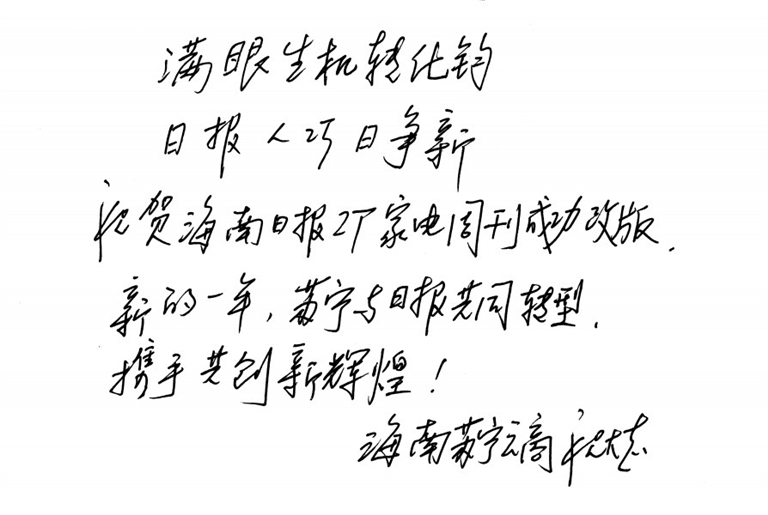 满眼生机转化钧
日报人巧日争新
祝贺海南日报IT家电周刊成功改版.
新的一年,苏宁与日报共同转型.
携手共创新辉煌!
海南苏宁云商 祝大志